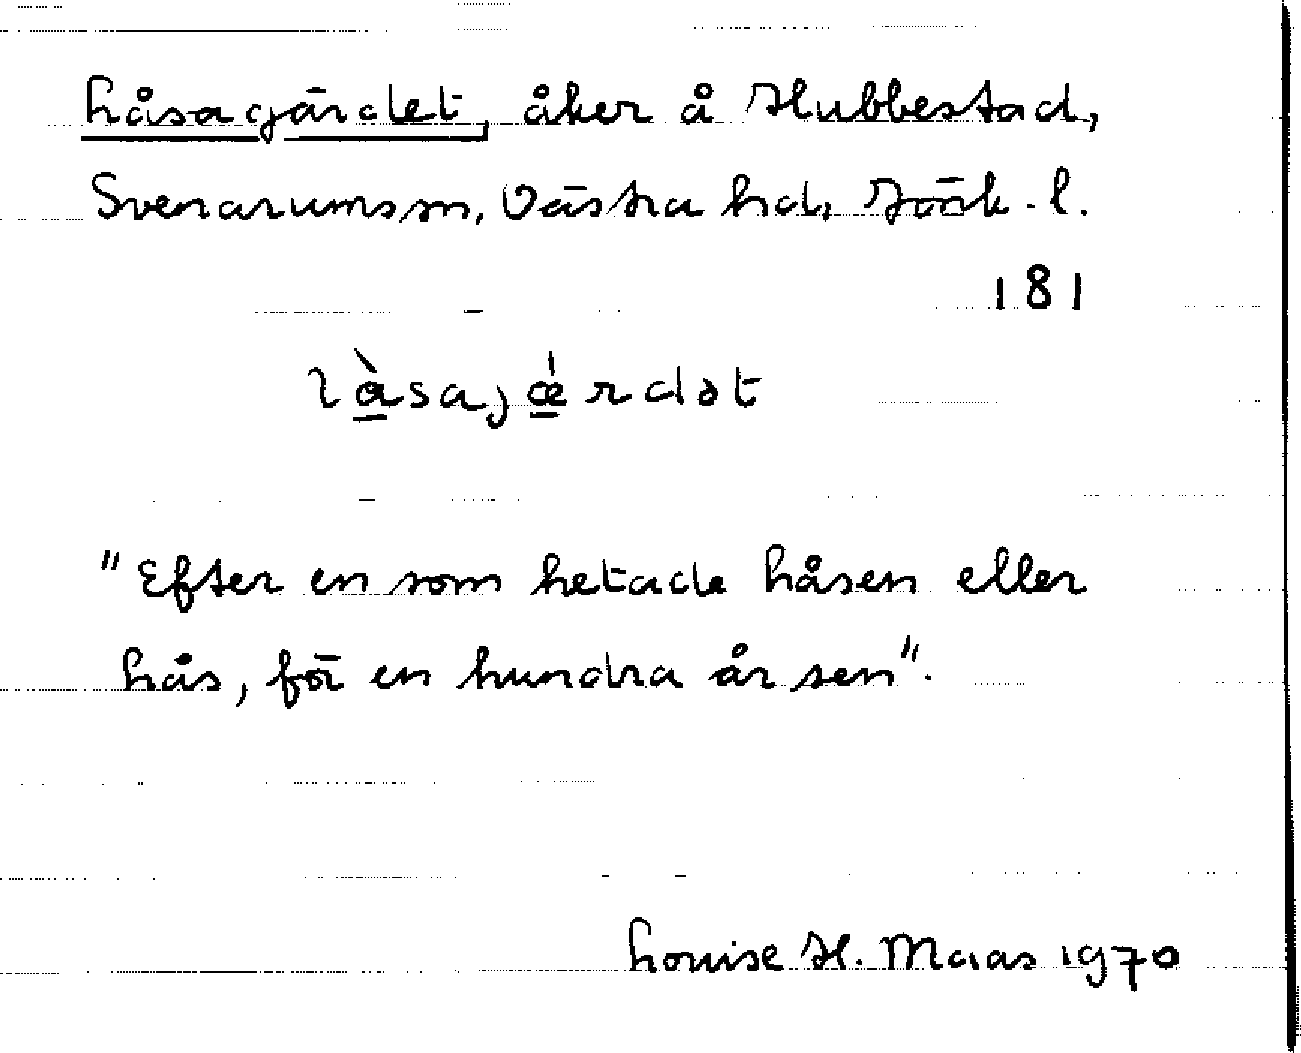 Låsagärdet, åker å Hubbestad,
Svenarumssn, Västra hd, Jönk. l.
181
låsajǽrdət
"Efter en som hetade Låsen eller
Lås, för en hundra år sen".
Louise H. Maas 1970